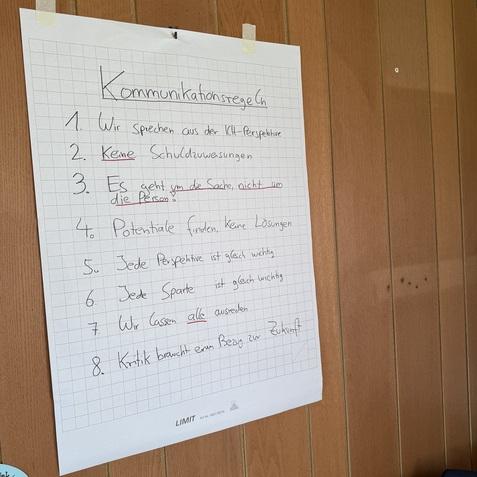 Kommunikationsregeln
1. Wir sprechen aus der ICH-Perspektive
2. Keine Schuldzuweisungen
3. Es geht um die Sache, nicht um
die Person!
4. Potentiale finden, keine Lösungen
5. Jede Perspektive ist gleich wichtig
6. Jede Sparte ist gleich wichtig
7. Wir lassen alle ausreden
8. Kritik braucht einen Bezug zur Zukunft
LIMIT